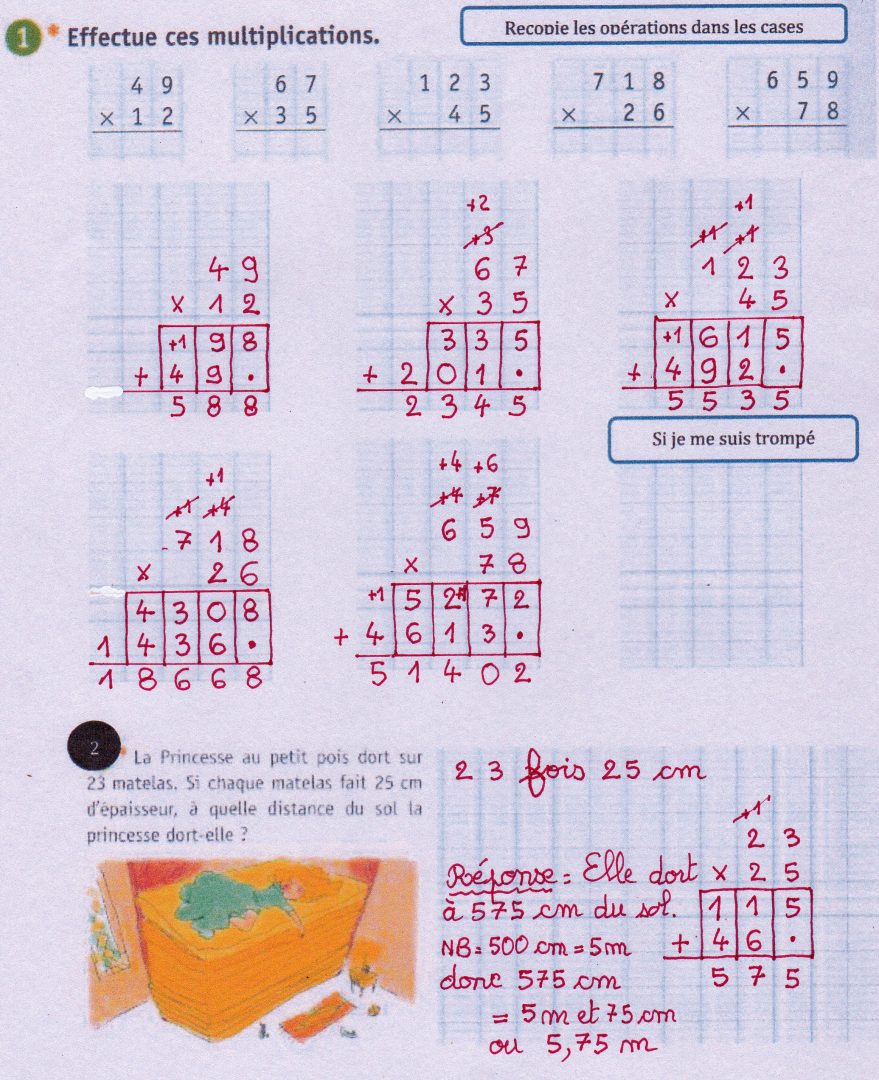 1 * Effectue ces multiplications.
Recopie les opérations dans les cases
4 9
× 1 2
6 7
× 3 5
1 2 3
× 4 5
7 1 8
× 2 6
6 5 9
× 7 8
4 9
x 1 2
+1 9 8
+ 4 9 .
5 8 8
+2
+3
6 7
x 3 5
3 3 5
+ 2 0 1 .
2 3 4 5
+1
+1 +1
1 2 3
x 4 5
+1 6 1 5
+ 4 9 2 .
5 5 3 5
Si je me suis trompé
+1
+1 +4
7 1 8
x 2 6
4 3 0 8
1 4 3 6 .
1 8 6 6 8
+4 +6
+4 +7
6 5 9
x 7 8
+1 5 2+1 7 2
+ 4 6 1 3 .
5 1 4 0 2
2 * La Princesse au petit pois dort sur
23 matelas. Si chaque matelas fait 25 cm
d'épaisseur, à quelle distance du sol la
princesse dort-elle ?
2 3 fois 25 cm
Réponse : Elle dort
à 575 cm du sol.
NB : 500 cm = 5m
donc 575 cm
= 5 m et 75 cm
ou 5,75 m
+1
2 3
x 2 5
1 1 5
+ 4 6 .
5 7 5